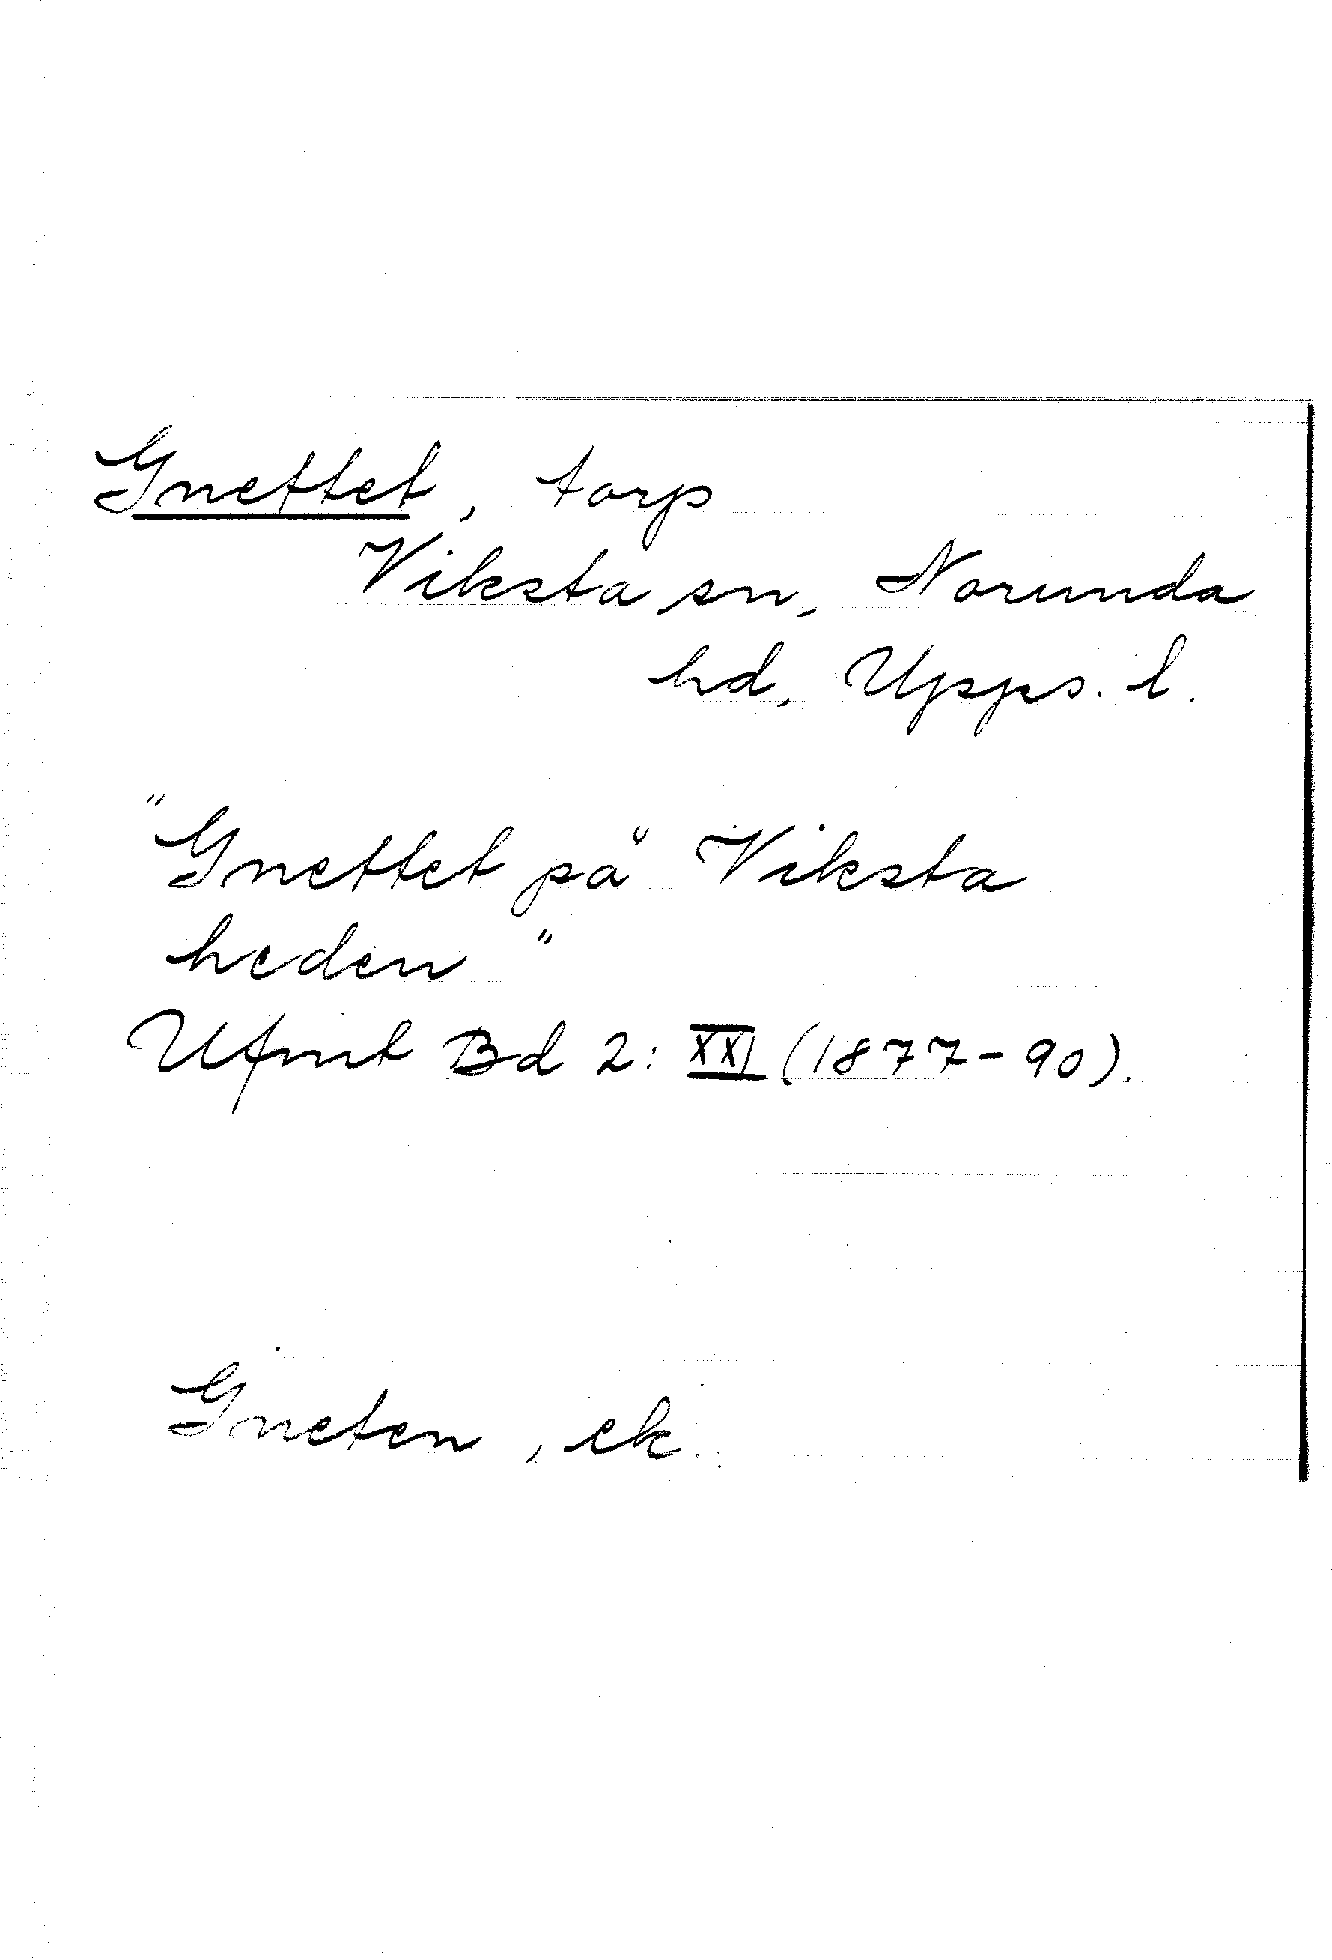 Gnettet, torp
Viksta sn, Norunda
hd, Upps. l.
"Gnettet på Viksta
heden"
Ufmt Bd 2: XXI (1877-90).
Gneten, ek.